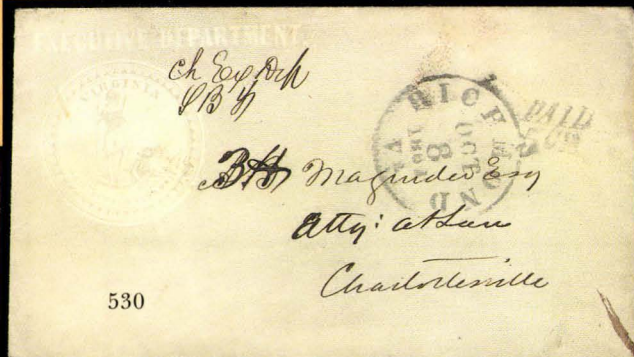 EXECUTIVE DEPARTMENT
VIRGINIA
Ch Ex Dep
RICHMOND VA
OCT
8
186
PAID
5 cts
B H Magruder Esq
Atty: at Law
Charlottesville
530